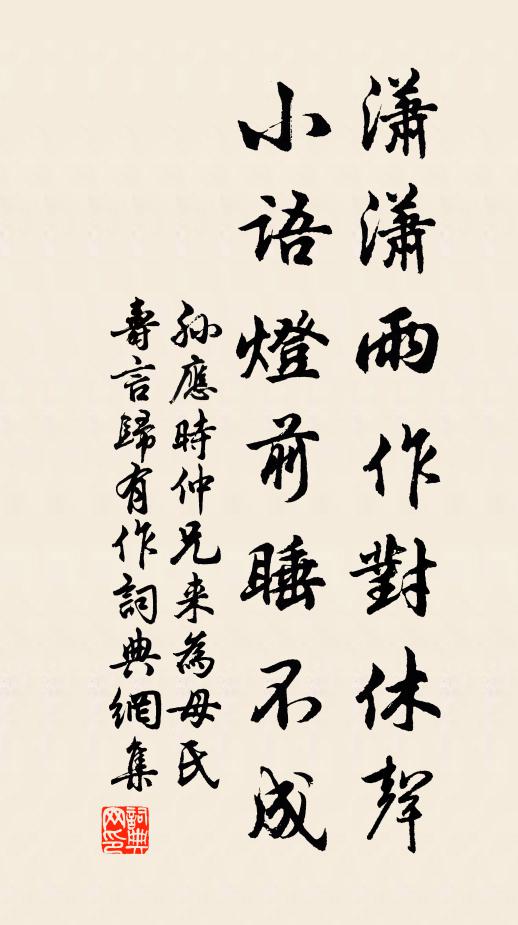 瀟瀟雨作對休聲
小語燈前睡不成
孫應時仲兄来為母氏
壽言歸有作詞典網集
詞典网印